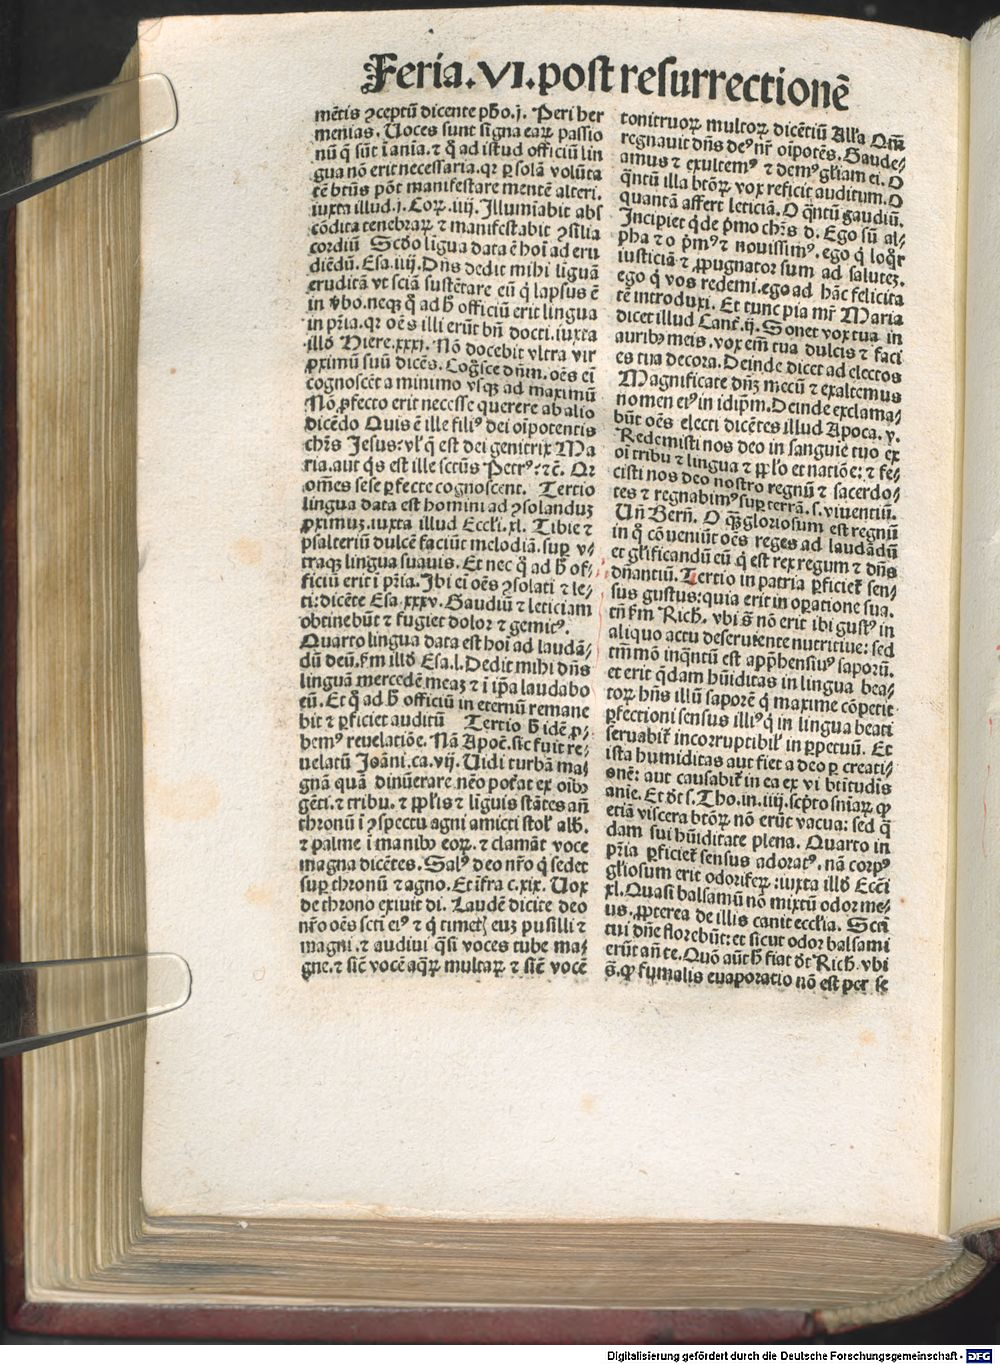 Feria.VI.post resurrectionē
mētis ꝯceptū dicente pħo.j. Peri her
menias. Uoces sunt signa earꝝ passio
nū q̄ sūt ī anīa.⁊ q̇ ad istud officiū lin
gua nō erit necessaria.qꝛ ꝑ solā volūta
tē btūs pōt manifestare mentē alteri.
iuxta illud.i.Corꝝ.iiij.Illumīabit abs
cōdita tenebrarꝝ ⁊ manifestabit ꝯsilia
cordiū Scďo līgua data ē hoī ad eru
diēdū.Esa.iiij.Dn̄s dedit mihi līguā
eruditā vt sciā sustētare eū q̇ lapsus ē
in v̄bo.neqꝫ q̇ ad ħ officiū erit lingua
in pr̄ia.qꝛ oēs illi erūt bn̄ docti.iuxta
illď Hiere.xxxj. Nō docebit vltra vir
ꝓximū suū dicēs. Cog̊sce dn̄m.oēs eī
cognoscēt a minimo vsqꝫ ad maximū
Nō ꝓfecto erit necesse querere ab alio
dicēdo Quis ē ille filiꝰ dei oīpotentis
chr̄s Jesus:vl̓ q̄ est dei genitrix Ma
ria.aut q̇s est ille sctūs Petrꝰ:⁊c̄. Qꝛ
om̄es sese ꝑfecte cognoscent. Tertio
lingua data est homini ad ꝯsolanduꝫ
ꝓximuꝫ.iuxta illud Eccl̓i.xl. Tibie ⁊
psalteriū dulcē faciūt melodiā.suꝑ v⸗
traqꝫ lingua suauis. Et nec q̇ ad ħ of⸗
ficiū erit ī pr̄ia.Ibi eī oēs ꝯsolati ⁊ le⸗
ti:dicēte Esa.xxxv.Gaudiū ⁊ leticiam
obtinebūt ⁊ fugiet dolor ⁊ gemitꝰ.
Quarto lingua data est hoī ad laudā⸗
dū deū.fm illď Esa.l.Dedit mihi dn̄s
linguā mercedē meaꝫ ⁊ ī ip̄a laudabo
eū. Et q̇ ad ħ officiū in eternū remane
bit ⁊ ꝑficiet auditū Tertio ħ idē ꝓ⸗
bemꝰ reuelatiōe. Nā Apoc̄.sic fuit re⸗
uelatū Joāni.ca.vij. Uidi turbā ma⸗
gnā quā dinūerare nēo poťat ex oībꝰ
gēti.⁊ tribu.⁊ ppl̓is ⁊ līguis stātes an̄
thronū ī ꝯspectu agni amicti stol̓ alb̓.
⁊ palme ī manibꝰ eorꝝ.⁊ clamāt voce
magna dicētes. Salꝰ deo nr̄o q̇ sedet
suꝑ thronū ⁊ agno. Et īfra c.xix. Uox
de throno exiuit di. Laudē dicite deo
nr̄o oēs sctī eiꝰ ⁊ q̇ timetꝭ euꝫ pusilli ⁊
magni.⁊ audiui q̄si voces tube ma⸗
gne.⁊ sic̄ vocē aq̄rꝝ multarꝝ ⁊ sic̄ vocē
tonitruorꝝ multorꝝ dicētiū All̓a Qm̄
regnauit dn̄s deꝰ nr̄ oīpotēs. Gaude⸗
amus ⁊ exultemꝰ ⁊ demꝰ gl̓iam ei. O
q̄ntū illa btōrꝝ vox reficit auditum. O
quantā affert leticiā. O q̄ntū gaudiū.
Incipiet q̇de pṁo chr̄s d. Ego sū al⸗
pha ⁊ o pṁꝰ ⁊ nouissimꝰ.ego q̇ loq̇r
iusticiā ⁊ ꝓpugnator sum ad saluteꝫ.
ego q̇ vos redemi.ego ad hāc felicita
tē introduxi. Et tunc pia mr̄ Maria
dicet illud Canť.ij. Sonet vox tua in
auribꝰ meis.vox em̄ tua dulcis ⁊ faci
es tua decora. Deinde dicet ad electos
Magnificate dn̄ꝫ mecū ⁊ exaltemus
nomen eiꝰ in idip̄m. Deinde exclama⸗
būt oēs electi dicētes illud Apoca.v.
Redemisti nos deo in sanguie tuo ex
oī tribu ⁊ lingua ⁊ ppl̓o et natiōe:⁊ fe⸗
cisti nos deo nostro regnū ⁊ sacerdo⸗
tes ⁊ regnabimꝰ suꝑ terrā.s.viuentiū.
Un̄ Bern̄. O q̄ꝫ gloriosum est regnū
in q̊ cōueniūt oēs reges ad laudādū
et gl̓ificandū eū q̇ est rex regum ⁊ dn̄s
dn̄antiū. Tertio in patria ꝑficieť sen⸗
sus gustus:quia erit in oꝑatione sua.
tn̄ fm Rich̓. vbi s̄ nō erit ibi gustꝰ in
aliquo actu deseruiente nutritiue: sed
tm̄mō inq̄ntū est app̄hensiuꝰ saporū.
et erit q̄dam hūiditas in lingua bea⸗
torꝝ hn̄s illū saporē q̇ maxime cōpetit
ꝑfectioni sensus illiꝰ q̇ in lingua beati
seruabiť incorruptibil̓ in ꝑpetuū. Et
ista humiditas aut fiet a deo ꝑ creati⸗
onē: aut causabiť in ea ex vi btītudīs
anie. Et dt̄ s.Tho.in.iiij.scp̄to sn̄iarꝝ ꝙ
etiā viscera btōrꝝ nō erūt vacua: sed q̄
dam sui hūiditate plena. Quarto in
pr̄ia ꝑficieť sensus odoratꝰ. nā corpꝰ
gl̓iosum erit odoriferꝝ :iuxta illď Ecc̄i
xl. Quasi balsamū nō mixtū odor me⸗
us.ꝓpterea de illis canit eccl̓ia. Sctī
tui dn̄e florebūt:et sicut odor balsami
erūt an̄ te. Quō aūt ħ fiat dt̄ Rich̓. vbi
s̄.ꝙ fumalis euaporatio nō est per se
Digitalisierung gefördert durch die Deutsche Forschungsgemeinschaft - DFG